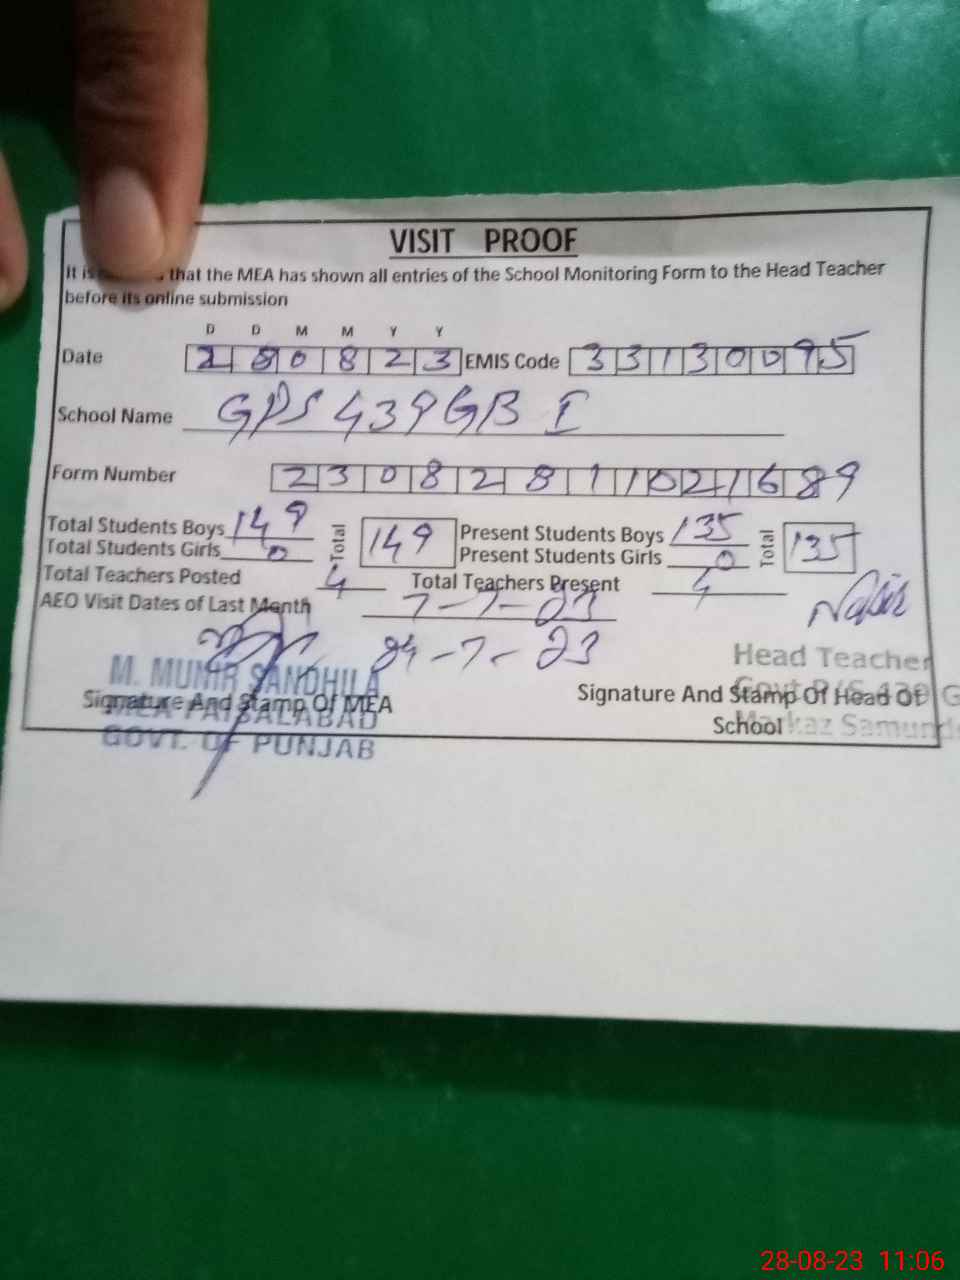 VISIT PROOF
It is that the MEA has shown all entries of the School Monitoring Form to the Head Teacher
before its online submission
D D M M Y Y
Date 280823 EMIS Code 33130095
School Name GPS 439 GB I
Form Number 23082811021689
Total Students Boys 149 Total 149 Present Students Boys 135 Total 135
Total Students Girls 0 Present Students Girls 0
Total Teachers Posted 4 Total Teachers Present 4
AEO Visit Dates of Last Month 7-7-23
24-7-23
M. MUNIR SANDHILA
Signature And Stamp Of MEA
MEA FAISALABAD
GOVT. OF PUNJAB
Head Teacher
Signature And Stamp Of Head Of
School
Markaz Samund
28-08-23 11:06